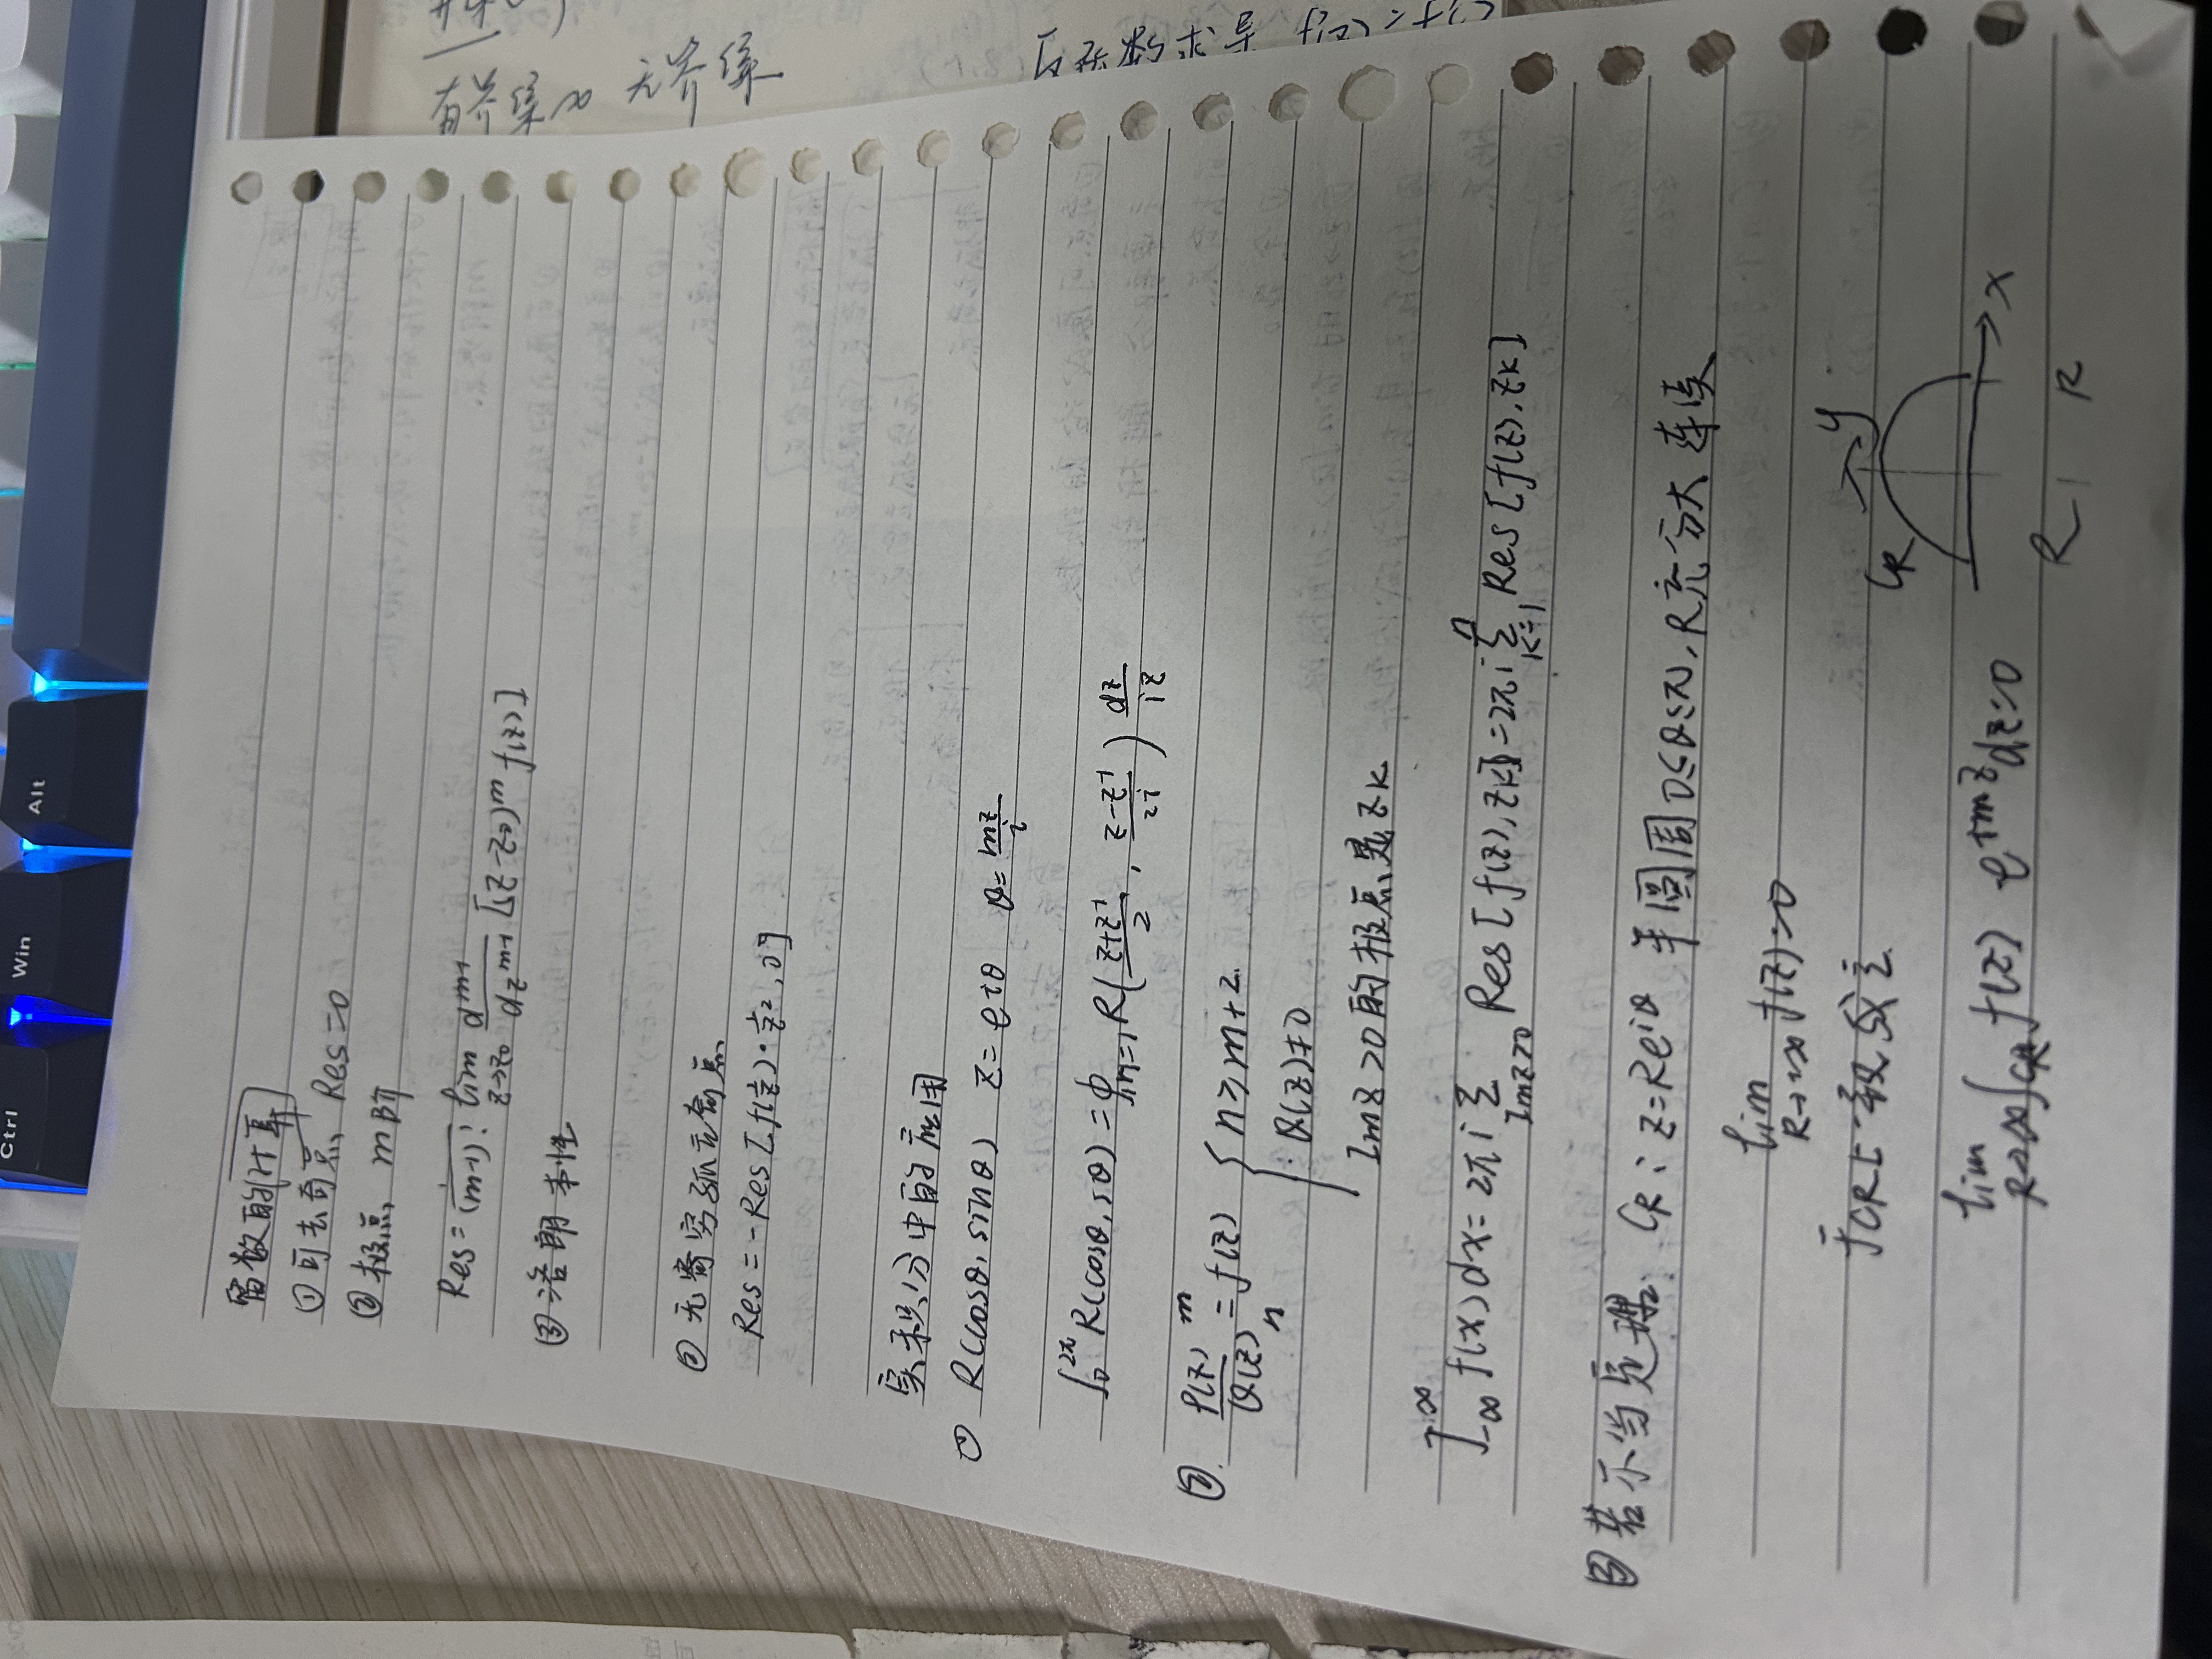 Ctrl Win Alt
留数的计算
① 可去奇点 Res=0
② 极点 m阶
Res = 1/(m-1)! lim_{z→z₀} d^{m-1}/dz^{m-1} [(z-z₀)^m f(z)]
③ 洛朗 本性
② 无奇穷孤立奇点
Res = -Res[f(1/z)·1/z², 0]
实积分中的应用
① R(cosθ, sinθ) z = eiθ θ = mz/i
∫₀^{2π} R(cosθ, sθ) = ∮_{|z|=1} R((z+z⁻¹)/2, (z-z⁻¹)/2i) dz/iz
②. P(z)/Q(z) = f(z) m n { n ≥ m+2.
Q(z)≠0
Imz>0 的极点是zk
∫_{-∞}^{∞} f(x)dx = 2πi Σ_{Imz>0} Res[f(z), zk] = 2πi Σ_{k=1}^{n} Res[f(z), zk]
③ 若不当定理. CR: z=Re^{iθ} 半圆周 0≤θ≤π, R充分大 连续
lim_{R→+∞} f(z)=0
于CR上一致成立.
lim_{R→∞} ∫_{CR} f(z) e^{imz} dz=0
y
CR
x
R R
右斜率∞ 无斜率